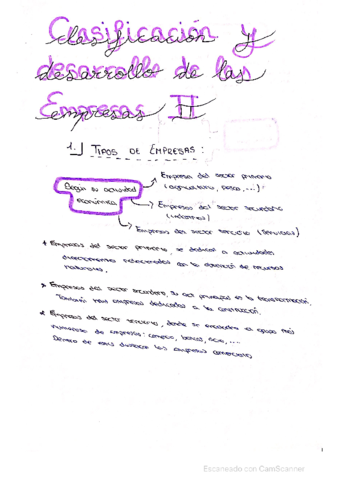 Clasificación y
desarrollo de las
Empresas II
1.) TIPOS DE EMPRESAS:
Según su actividad
económica
Empresa del sector primario
(agricultura, pesca, ...)
Empresas del sector secundario
(industrias)
Empresas del sector terciario (servicios)
Empresas del sector primario, se dedican a actividades
directamente relacionadas con la obtención de recursos
naturales.
Empresas del sector secundario, su act principal es la transformación.
También hay empresas dedicadas a la construcción.
Empresas del sector terciario, donde se encuentra el grupo más
numeroso de empresas: comercio, bancos, ocio, ...
Dentro de estas destacar las empresas comerciales.
1
Escaneado con CamScanner